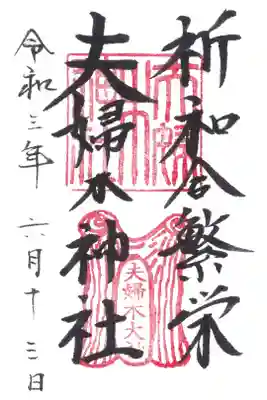 祈和合繁栄
夫婦木神社
令和三年 六月十三日
夫婦木大